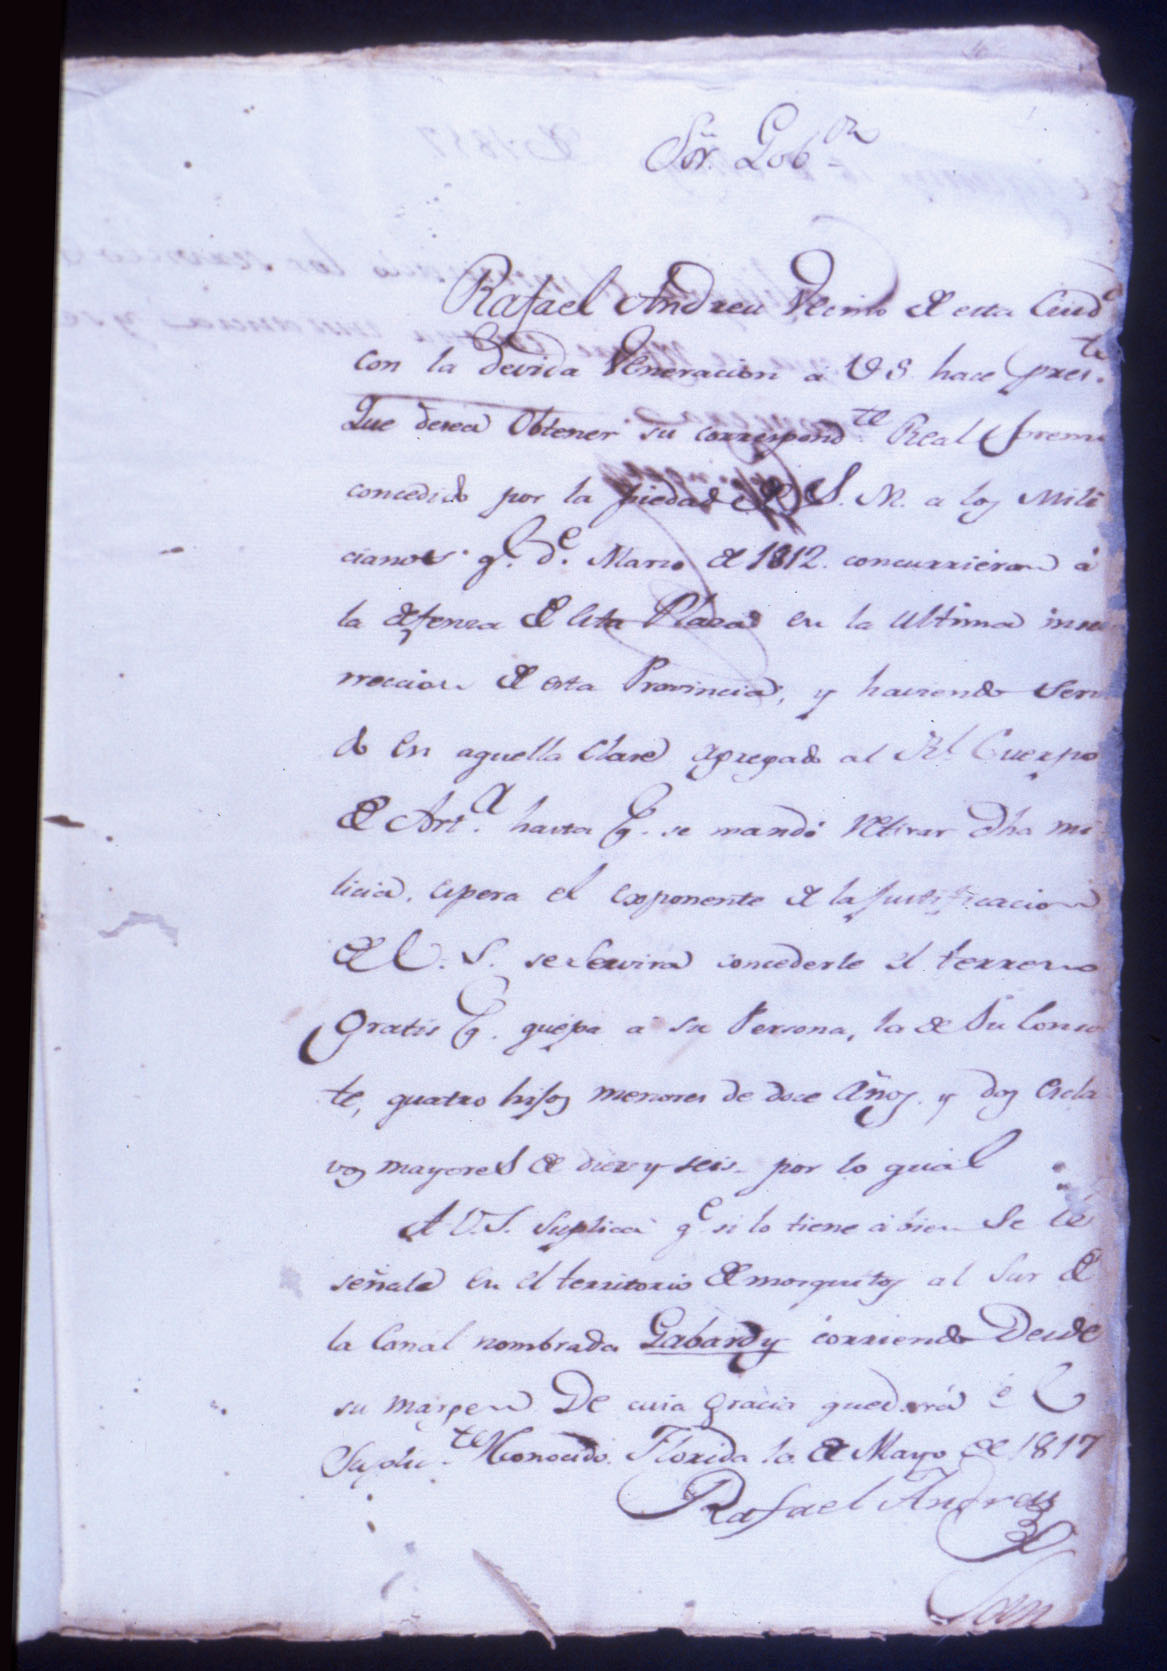 Sor. Gobor
Rafael Andreu Vecino de esta Ciudd
con la devida Veneracion á V S. hace preste
Que desea Obtener su correspondte Real premi
concedido por la piedad de S. M. a los Mili
cianos qe de Marzo de 1812. concurrieron á
la defensa de esta Plaza en la ultima insu
rreccion de esta Provincia, y haviendo servi
do en aquella Clase agregado al Rl Cuerpo
de Arta. hasta q. se mandó retirar dha mi
licia, espera el exponente de la justificacion
de V. S. se servira concederle el terreno
Gratis q. quepa á su Persona, la de su Consor
te, quatro hijos menores de doce años y dos escla
vos mayores de diez y seis por lo qual
A V. S. suplica qe si lo tiene á bien se le
señale en el territorio de mosquitos al Sur de
la Canal nombrada Gabardy corriendo Desde
su margen De cuia gracia quedará el
Suplicte reconocido. Florida 10. de Mayo de 1817
Rafael Andreu